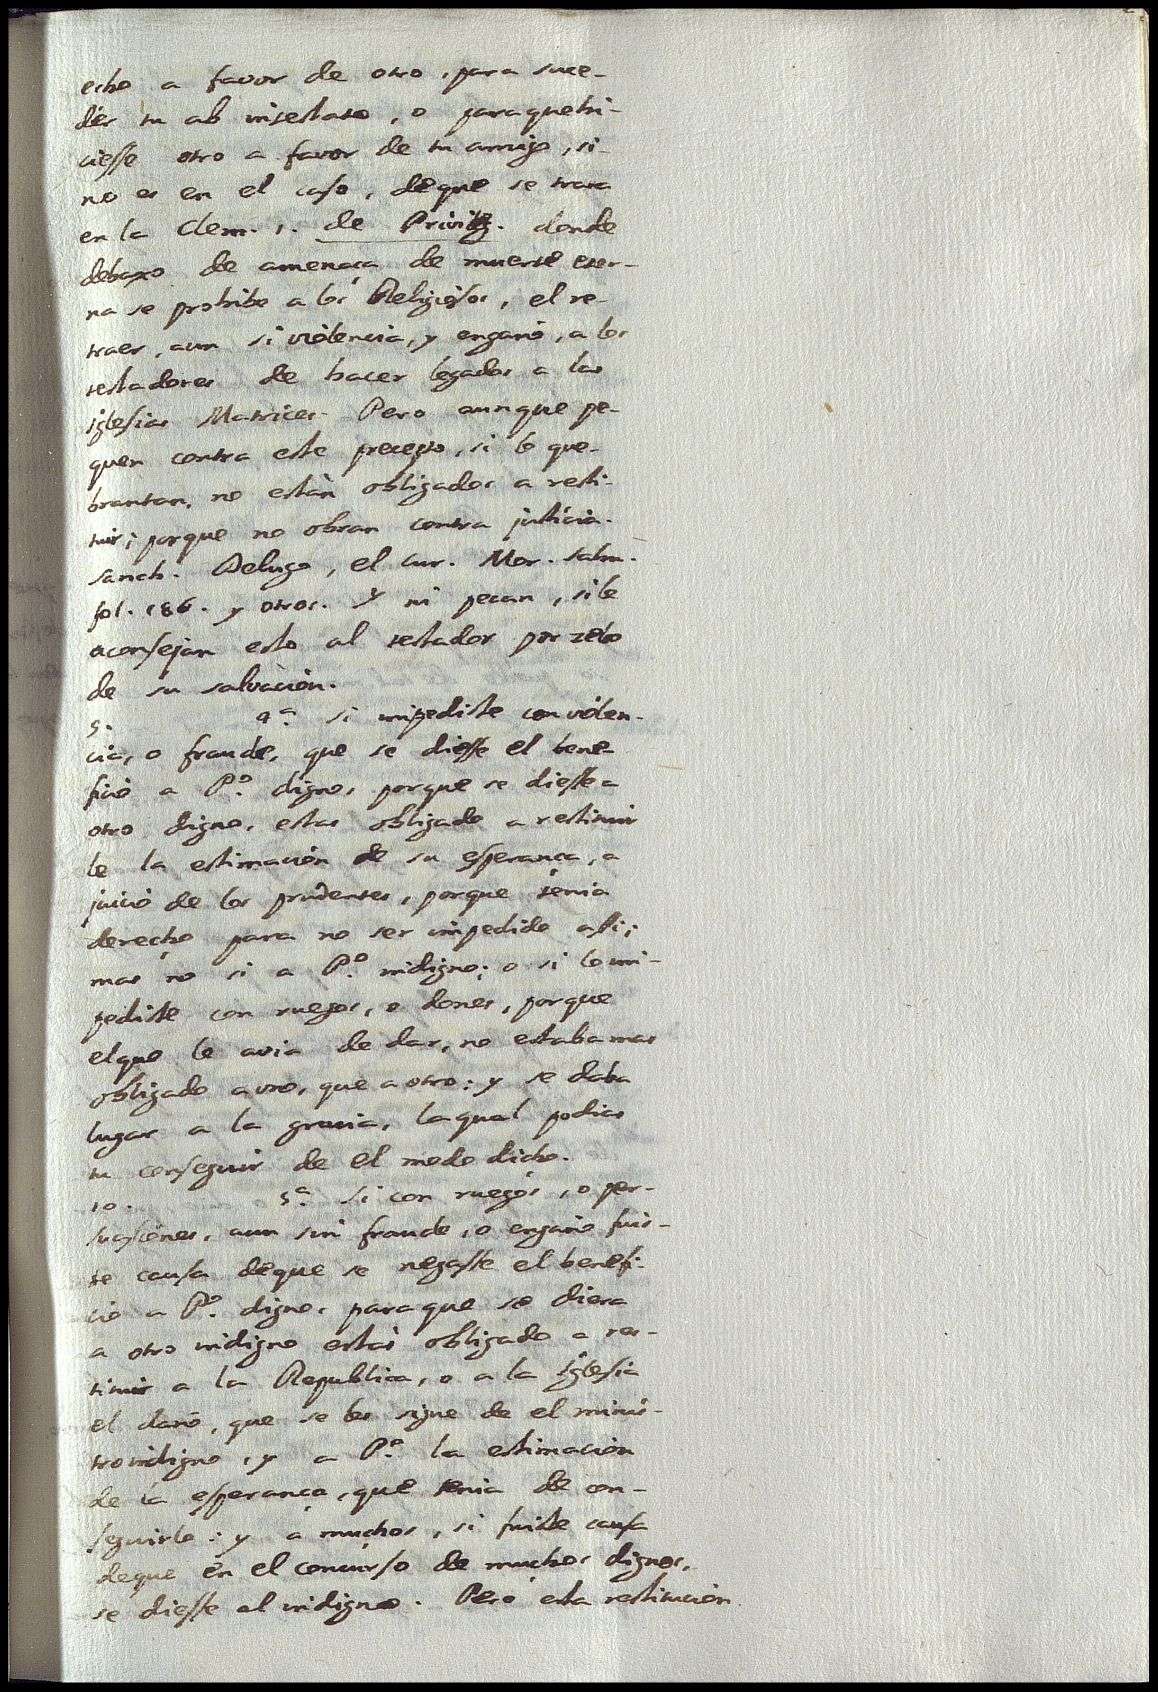 echo a favor de otro, para suce-
der tu ab intestato, o para que hi-
ciesse otro a favor de tu amigo, si-
no es en el caso, deque se trata
en la Clem. 1. de Privileg. donde
debaxo de amenaça de muerte eter-
na se prohibe a los Religiosos, el re-
traer, aun si violencia, y engaño, a los
testadores de hacer legados a las
iglesias Matrices. Pero aunque pe-
quen contra este precepto, si le que-
brantan, no estàn obligados a resti-
tuir; porque no obran contra justicia.
Sanch. Delugo, el Cur. Mor. Salm.
fol. 186. y otros. Y ni pecan, si le
aconsejan esto al testador por zelo
de su salvacion.
9. 4ª. si impediste con violen-
cia, o fraude, que se diesse el bene-
ficio a Pº. digno, porque se diesse a
otro digno, estas obligado a restituir
le la estimacion de su esperança, a
juicio de los prudentes, porque tenia
derecho para no ser impedido assi;
mas no si a Pº. indigno; o si lo im-
pediste con ruegos, o dones, porque
el que le avia de dar, no estaba mas
obligado a uno, que a otro: y se daba
lugar a la gracia, la qual podias
tu conseguir de el modo dicho.
10. 5ª. Si con ruegos, o per-
suasiones, aun sin fraude, o engaño fuis-
te causa deque se negasse el benefi-
cio a Pº. digno, para que se diera
a otro indigno estàs obligado a res-
tituir a la Republica, o a la Iglesia
el daño, que se les sigue de el minis-
tro indigno, y a Pº. la estimacion
de la esperança, que tenia de con-
seguirlo: y a muchos, si fuiste causa
deque en el concurso de muchos dignos,
se diesse al indigno. Pero esta restitucion